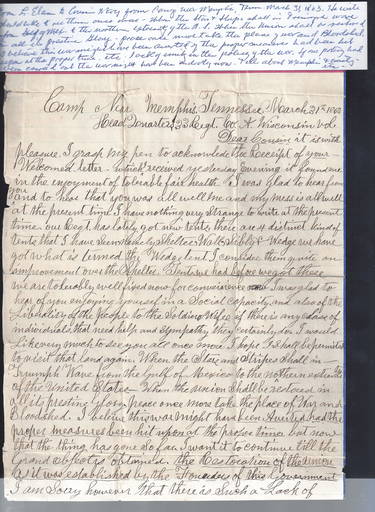 from L. Elam to Cousin Mary from Camp near Memphis, Tenn March 31, 1863. He writes
would like to see them once more when the Stars & Stripes shall in Triumph wave
from Gulf of Mex to the northern extremity of the U.S. When the Union shall be restored
in all its glory once more take the place of war and Bloodshed.
the war might have been averted if the proper measures had been hit
upon at the proper time, etc.
Camp Near Memphis, Tennessee March 31st 1863
Head Quarters 33 Regt. Co. A. Wisconsin Vol
Dear Cousin it is with
pleasure I grasp my pen to acknowledge the Receipt of your
Welcomed letter which I received yesterday evening it found me
in the enjoyment of tolerable fair health. I was glad to hear from
you and to hear that you was all well me and my mess is all well
at the present time I have nothing very strange to write at the present
time. our Regt has lately got new tents there are 4 distinct kind of
tents that I have seen namely Shelter Wall Sibly & Wedge we have
got what is termed the Wedge tent I consider them quite an
improvement over the Shelter Tents we had before we got these
we are tolerably well fixed now for convenience I was glad to
hear of you enjoying yourself in a Social capacity and also of the
Liberality of the people to the Soldiers Wifes if there is any class of
individuals that need help and Sympathy they certainly do I would
Like very much to see you all once more I hope I shall be permitted
to visit that Land again. When the Stars and Stripes Shall in
Triumph Wave from the Gulf of Mexico to the northern extremity
of the United States When the union Shall be restored in
all its prestine glory peace once more take the place of War and
Bloodshed. I believe this war might have been Averted had the
proper measures been hit upon at the proper time but now
that the thing has gone so far I want it to continue till the
Grand objects obtained. the Restoration of the union
as it was established by the Founders of this Government
I am Sorry however that there is Such a Lack of